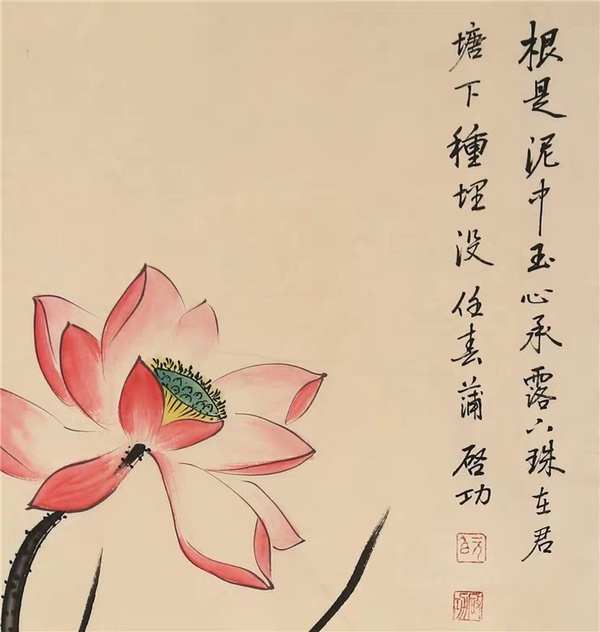 根是泥中玉心承露下珠在君
塘下種埋没任春蒲 啓功